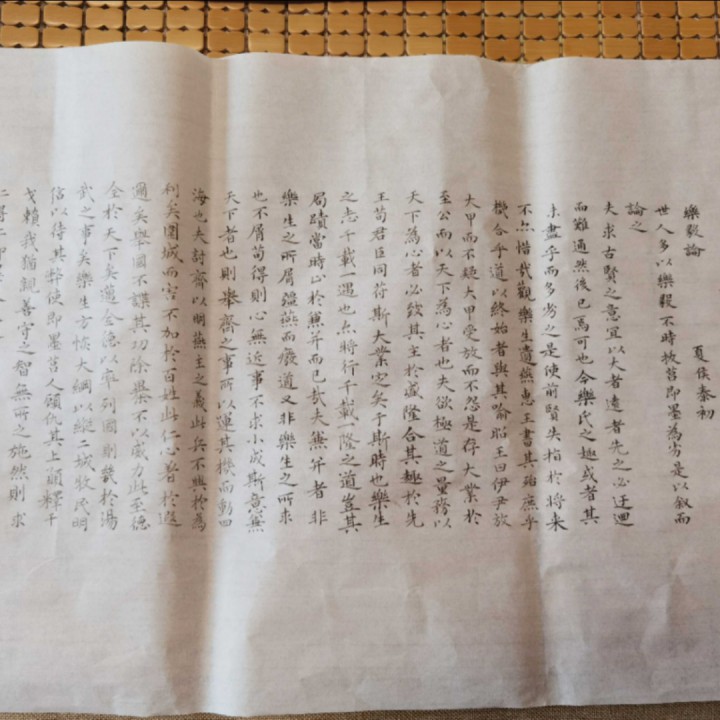 樂毅論
夏侯泰初
世人多以樂毅不時拔莒即墨為劣是以叙而
論之
夫求古賢之意宜以大者遠者先之必迂迴
而難通然後已焉可也今樂氏之趣或者其
未盡乎而多劣之是使前賢失指於將来
不亦惜哉觀樂生遺燕惠王書其殆庶乎
機合乎道以終始者與其喻昭王曰伊尹放
大甲而不疑大甲受放而不怨是存大業於
至公而以天下為心者也夫欲極道之量務以
天下為心者必致其主於盛隆合其趣於先
王苟君臣同符斯大業定矣于斯時也樂生
之志千載一遇也亦將行千載一隆之道豈其
局蹟當時止於兼并而已哉夫兼并者非
樂生之所屑彊燕而廢道又非樂生之所求
也不屑苟得則心無近事不求小成斯意兼
天下者也則舉齊之事所以運其機而動四
海也夫討齊以明燕主之義此兵不興於為
利矣圍城而害不加於百姓此仁心著於遐
邇矣舉國不謀其功除暴不以威力此至德
全於天下矣邁全德以率列國則幾於湯
武之事矣樂生方恢大綱以縱二城牧民明
信以待其弊使即墨莒人顧仇其上願釋干
戈賴我猶親善守之智無所之施然則求
仁得仁即